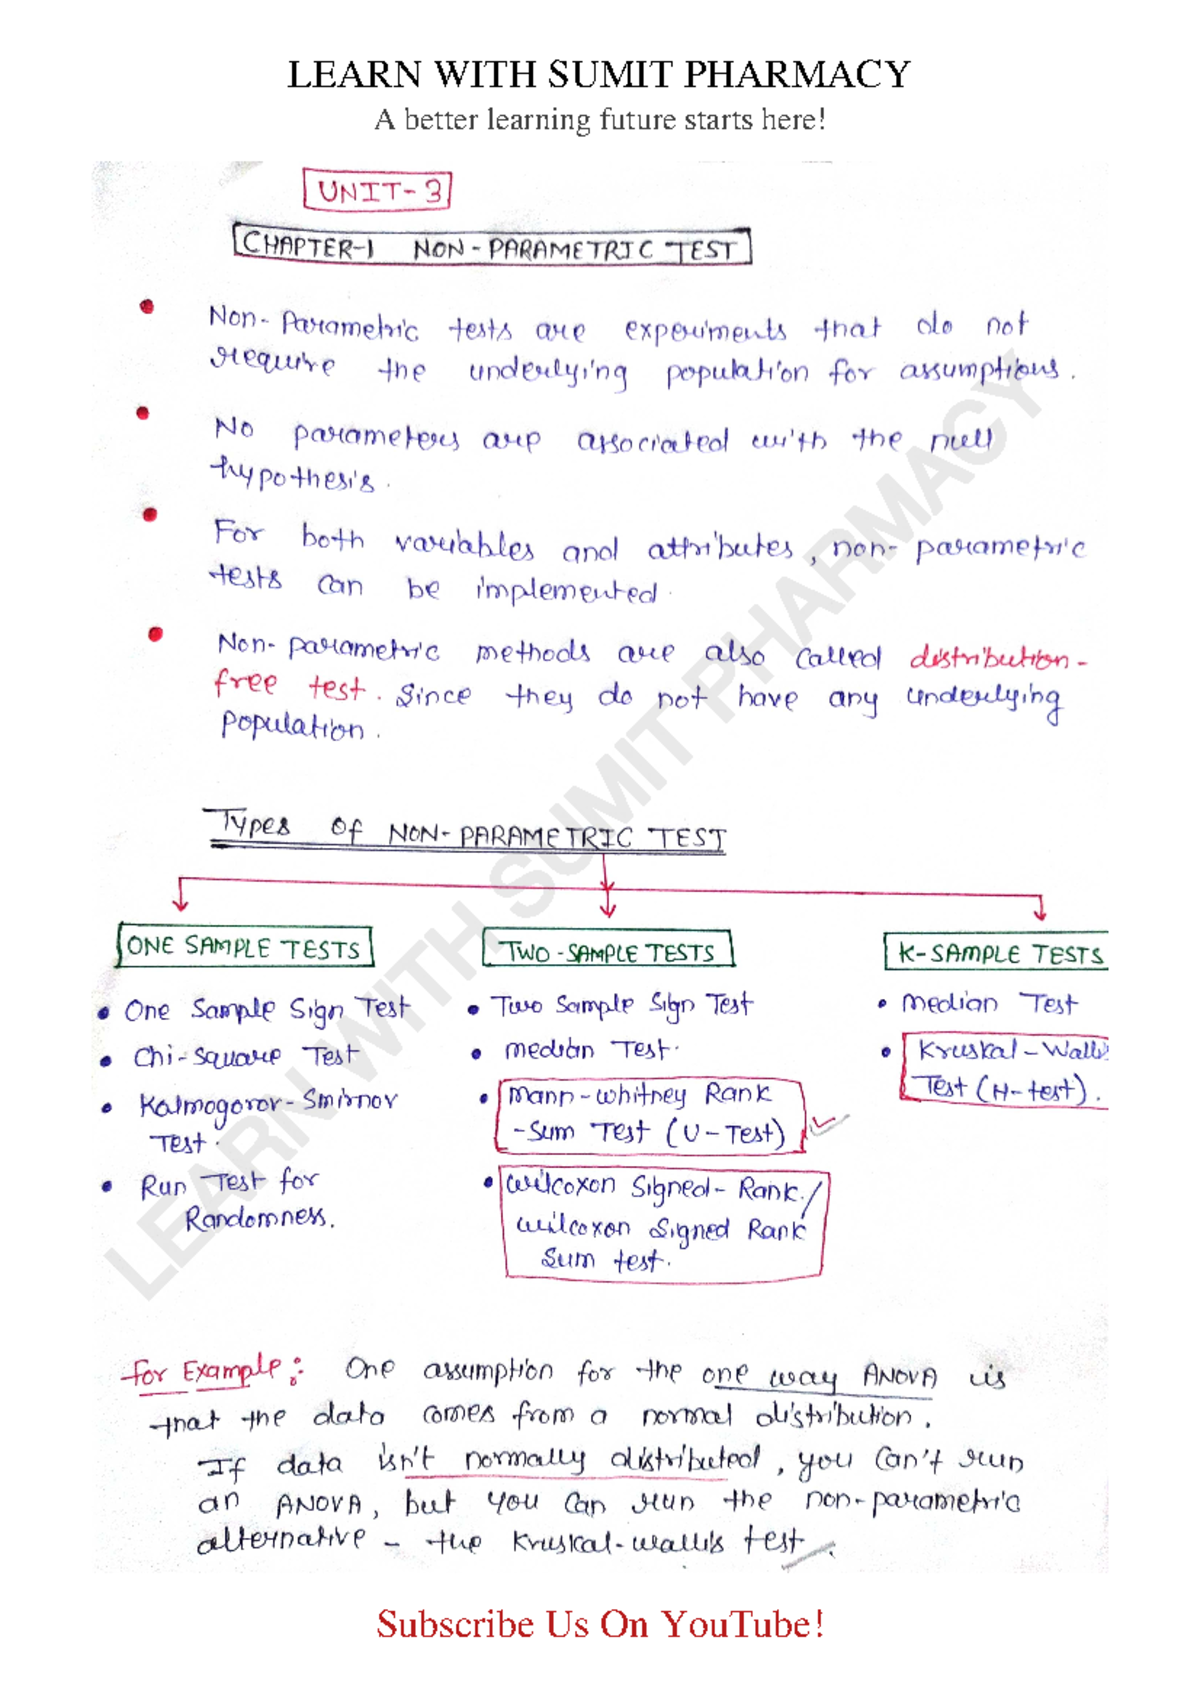 LEARN WITH SUMIT PHARMACY
A better learning future starts here!
UNIT-3
CHAPTER-1 NON-PARAMETRIC TEST
• Non-Parametric tests are experiments that do not
require the underlying population for assumptions.
• No parameters are associated with the null
hypothesis.
• For both variables and attributes, non-parametric
tests can be implemented.
• Non-parametric methods are also called distribution-
free test. Since they do not have any underlying
population.
Types of NON-PARAMETRIC TEST
ONE SAMPLE TESTS
• One Sample Sign Test
• Chi-square Test
• Kalmogorov-Smirnov
Test.
• Run Test for
Randomness.
TWO-SAMPLE TESTS
• Two Sample Sign Test
• Median Test.
• Mann-Whitney Rank
-Sum Test (U-Test)
• Wilcoxon Signed-Rank./
Wilcoxon Signed Rank
Sum test.
K-SAMPLE TESTS
• Median Test
• Kruskal-Wallis
Test (H-test).
For Example:- One assumption for the one way ANOVA is
that the data comes from a normal distribution.
If data isn't normally distributed, you can't run
an ANOVA, but you can run the non-parametric
alternative - the Kruskal-wallis test.
LEARN WITH SUMIT PHARMACY
Subscribe Us On YouTube!